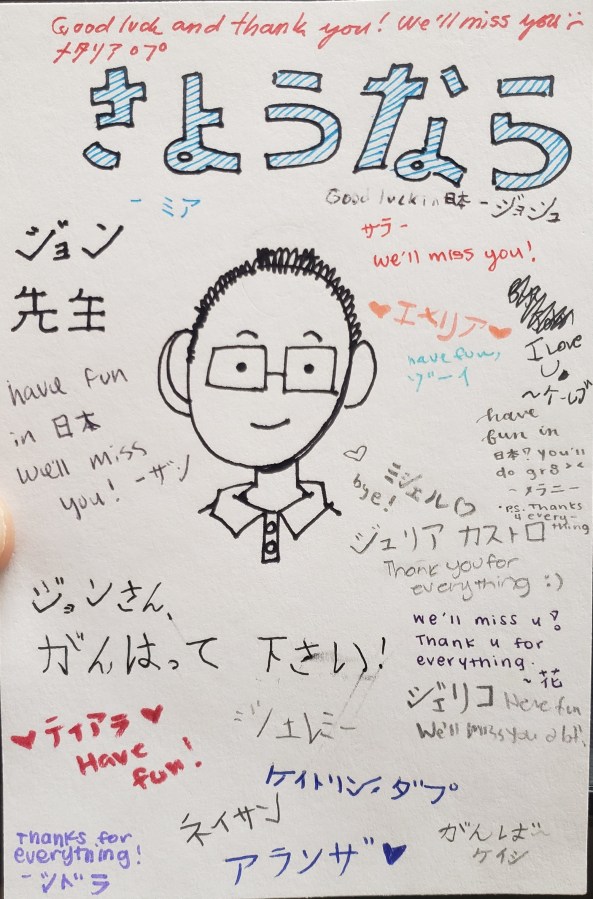 Good luck and thank you! We'll miss you
メタリア
きようなら
- ミア
Good luck in 日本 - ジョシュ
サラ -
we'll miss you!
ジョン
先生
エメリア
have fun,
ゾーイ
I Love
U.
~ケーレブ
have fun
in 日本
We'll miss
you! - ザン
have
fun in
日本? you'll
do gr8 >
- メラニー
・P.S. Thanks
4 every-
thing
ミシェル
bye!
ジュリア カストロ
Thank you for
everything :)
ジョンさん、
がんはって 下さい!
we'll miss u!
Thank u for
everything.
~ 花
ジェリコ Have fun
We'll miss you a lot.
ティアラ
Have
fun!
ジェレミー
ケイトリン・ダプ
ネイサン
アランザ
がんば~
ケイシ
Thanks for
everything!
- シドラ